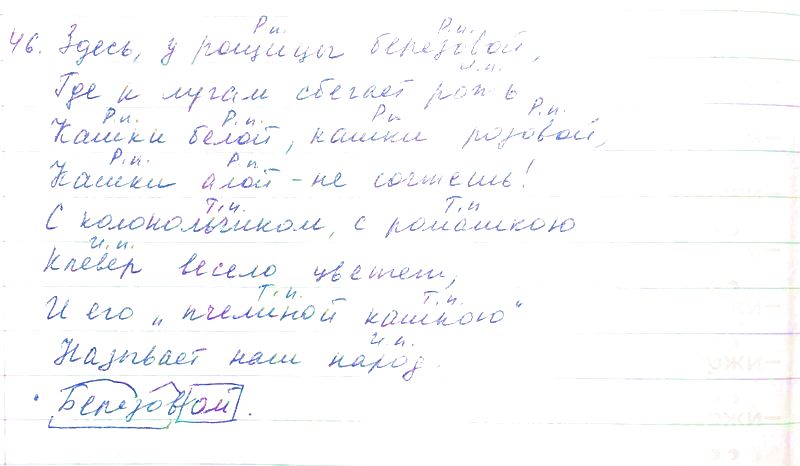 Р.п. Р.п.
46. Здесь, у рощицы березовой,
И.п.
Где к лугам сбегает рожь
Р.п. Р.п. Р.п. Р.п.
Кашки белой, кашки розовой,
Р.п. Р.п.
Кашки алой - не сочтешь!
Т.п. Т.п
С колокольчиком, с ромашкою
И.п.
Клевер весело цветет,
Т.п. Т.п.
И его „пчелиной кашкою"
И.п.
Называет наш народ.
Березовой.